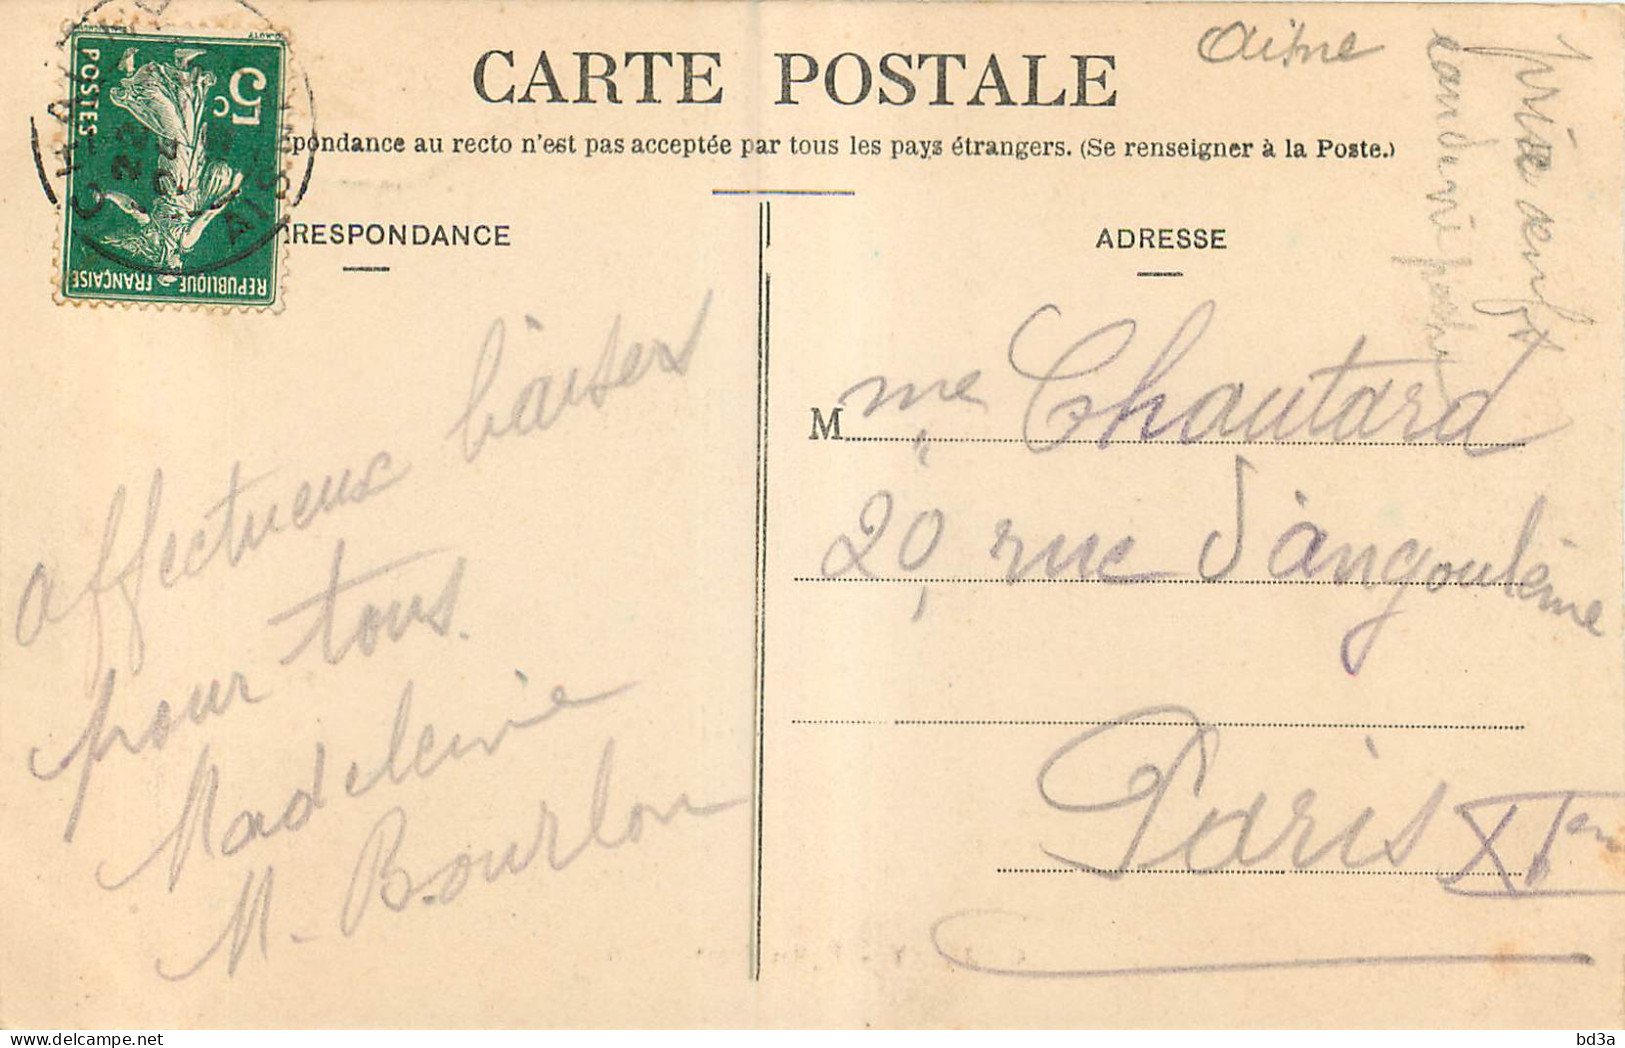 CARTE POSTALE
pondance au recto n'est pas acceptée par tous les pays étrangers. (Se renseigner à la Poste.)
RESPONDANCE
ADRESSE
POSTES
5c
REPUBLIQUE FRANÇAISE
22
AISNE
Aisne
affectueux baisers
pour tous.
Madeleine
M. Bourlon
Mme Chautard
20, rue d'angoulême
Paris XIem
bd3a